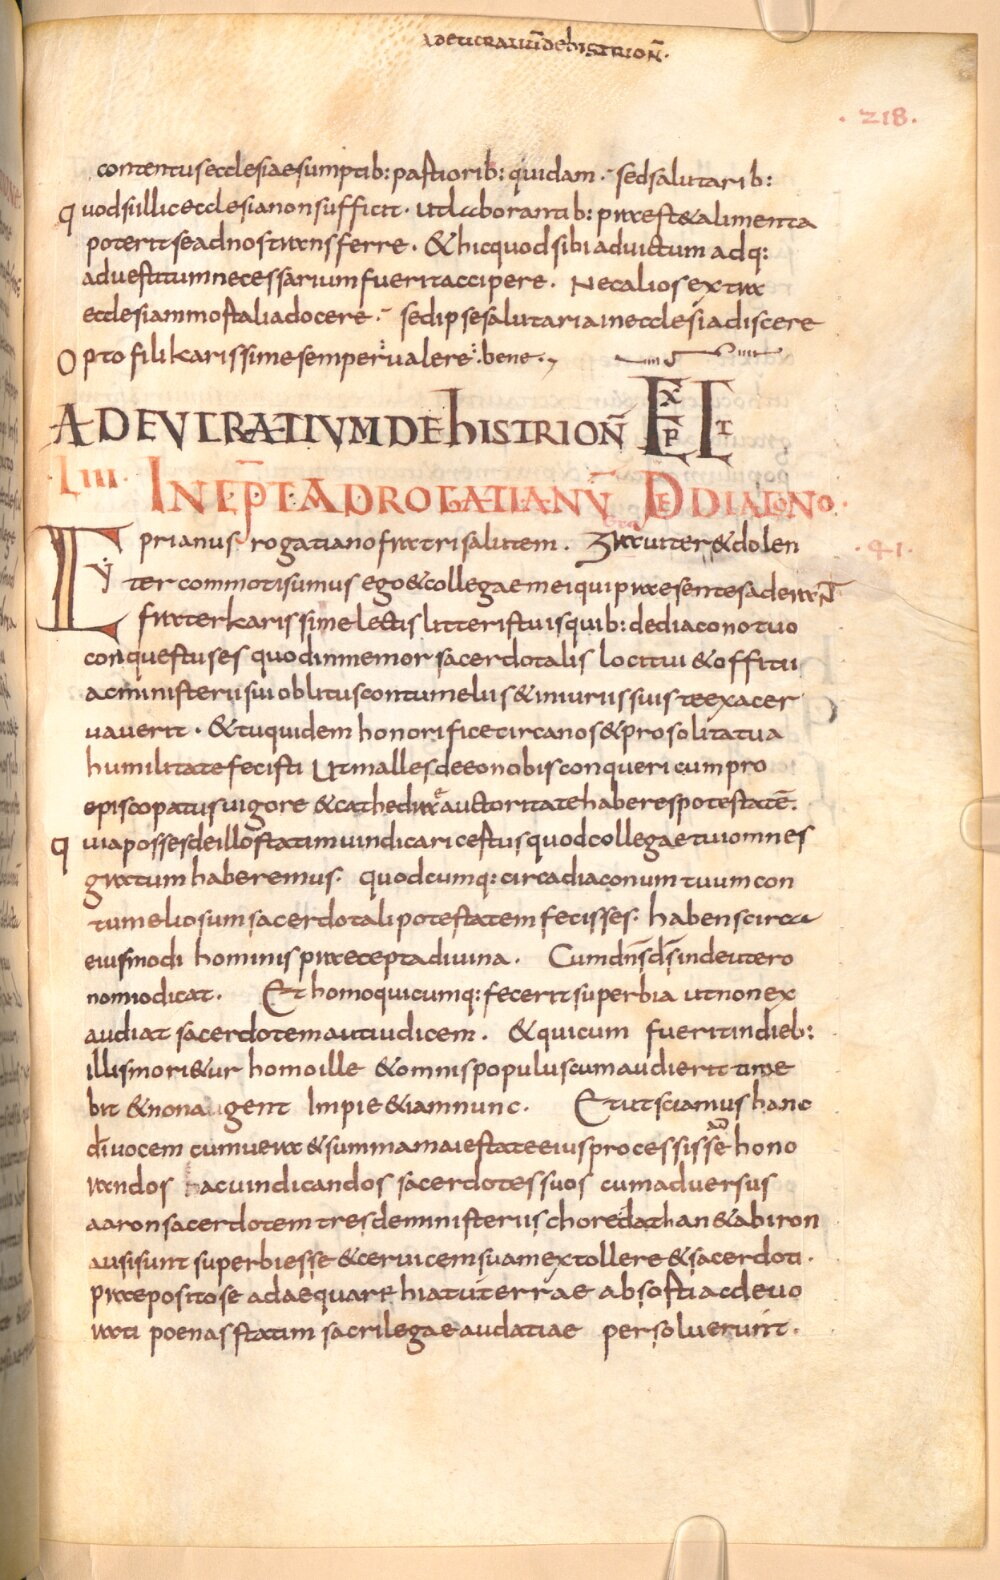 ADEUCRATIŪ DEHISTRIOÑ.
. 218 .
contentus ecclesiae sumptib: pastiorib: quidam. sed salutarib:
quod si illic ecclesia non sufficit. ut laborantib: praest & alimenta
poterit se ad nos transferre. & hic quod sibi ad uictum adq:
ad uestitum necessarium fuerit accipere. Nec alios extra
ecclesiam mostalia docere. sed ipse salutaria in ecclesia discere
Opto fili karissime semper ualere. bene.
ADEVCRATIVM DE hISTRIOÑ EXEP LT
.LIII. INCĒPT AD ROGATIANŪ DE DIACONO.
CYprianus rogatiano fratri salutem. Grauiter & dolen
. 41 .
ter commoti sumus ego & collegae mei qui praesentes aderaNT
frater karissime lectis litteris tuis quib: de diacono tuo
conquestus es quod inmemor sacerdotalis loci tui & officii
ac ministerii sui oblitus contumeliis & iniuriis suis te exacer
uauerit. & tu quidem honorifice circa nos & pro solita tua
humilitate fecisti Ut malles de eo nobis conqueri cum pro
episcopatus uigore & cathedrae auctoritate haberes potestatē.
quia posses de illo statim uindicari certus quod collegae tui omnes
gratum haberemus. quodcumq: circa diaconum tuum con
tumeliosum sacerdotali potestatem fecisses. habens circa
eiusmodi hominis praecepta diuina. Cum dn̄s ds̄ in deutero
nomio dicat. Et homo quicumq: fecerit superbia ut non ex
audiat sacerdotem aut iudicem. & quicum fuerit in dieb:
illis mori&ur homo ille & omnis populus cum audierit time
bit & non a gent Impie & iam nunc. Et ut sciamus hanc
dī uocem cum uera & summa maiestate eius processisse hono
randos ac uindicandos sacerdotes suos cum aduersus
aaron sacerdotem tres de ministeriis chore dathan & abiron
ausi sunt superbi esse & ceruicem suam extollere & sacerdoti.
praeposito se adaequare hiatu terrae absosti ac deuo
rati poenas statim sacrilegae audatiae persoluerunt.